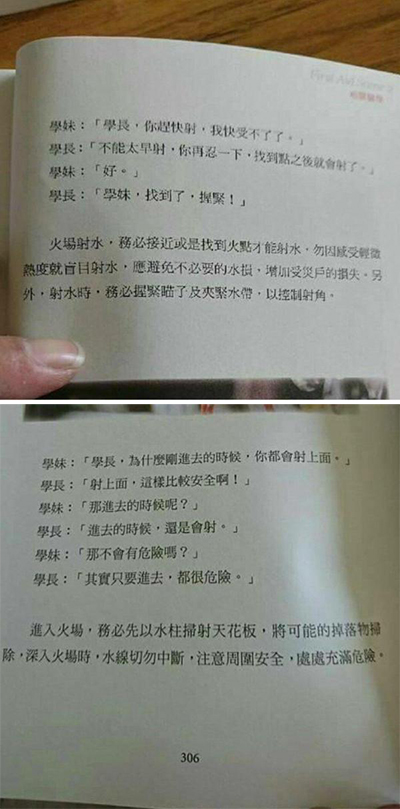 學妹：「學長，你趕快射，我快受不了了。」
學長：「不能太早射，你再忍一下，找到點之後就會射了。」
學妹：「好。」
學長：「學妹，找到了，握緊！」
火場射水，務必接近或是找到火點才能射水，勿因感受輕微
熱度就盲目射水，應避免不必要的水損，增加受災戶的損失。另
外，射水時，務必握緊瞄子及夾緊水帶，以控制射角。
學妹：「學長，為什麼剛進去的時候，你都會射上面。」
學長：「射上面，這樣比較安全啊！」
學妹：「那進去的時候呢？」
學長：「進去的時候，還是會射。」
學妹：「那不會有危險嗎？」
學長：「其實只要進去，都很危險。」
進入火場，務必先以水柱掃射天花板，將可能的掉落物掃
除，深入火場時，水線切勿中斷，注意周圍安全，處處充滿危險。
306